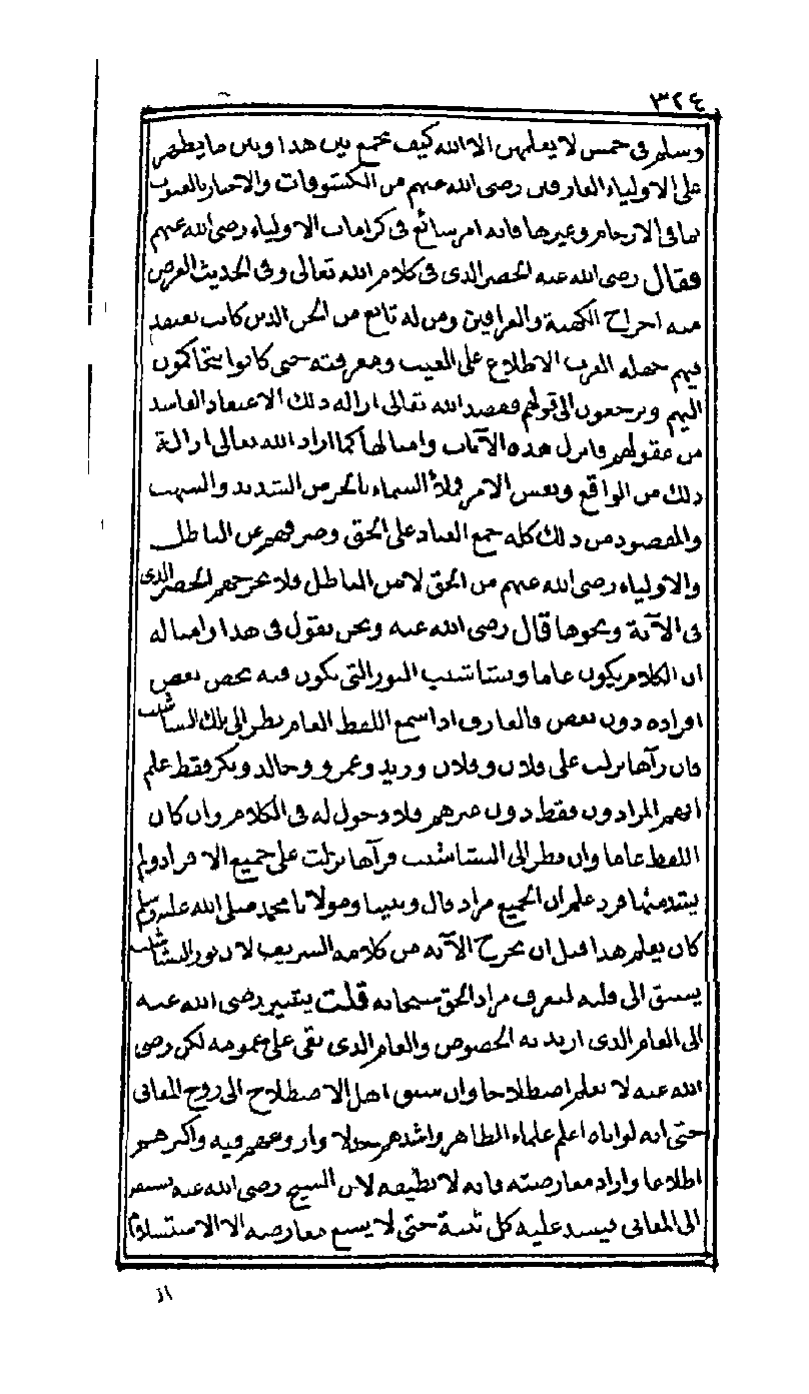 ٣٢٤
وسلم فى خمس لا يعلمهن الا الله كيف يجمع بين هذا وبين ما يظهر
على الاولياء العارفين رضى الله عنهم من الكشوفات والاخبار بالغيوب
بما فى الارحام وغيرها فانه امر شائع فى كرامات الاولياء رضى الله عنهم
فقال رضى الله عنه الحصر الذى فى كلام الله تعالى وفى الحديث الغرض
منه اخراج الكهنة والعرافين ومن له تابع من الجن الذين كانت تعتقد
فيهم جهلة العرب الاطلاع على الغيب ومعرفته حتى كانوا يتحاكمون
اليهم ويرجعون الى قولهم فقصد الله تعالى ازالة ذلك الاعتقاد الفاسد
من عقولهم فانزل هذه الآيات وامثالها كما اراد الله تعالى ازالة
ذلك من الواقع ونفس الامر فملأ السماء بالحرس الشديد والشهب
والمقصود من ذلك كله جمع العباد على الحق وصرفهم عن الباطل
والاولياء رضى الله عنهم من الحق لا من الباطل فلا يخرجهم الحصر الذى
فى الآية ونحوها قال رضى الله عنه ونحن نقول فى هذا وامثاله
ان الكلام يكون عاما ونشاشيب النور التى تكون فيه تخص بعض
افراده دون بعض فالعارف اذا سمع اللفظ العام نظر الى تلك النشاشيب
فان رآها نزلت على فلان وفلان وزيد وعمرو وخالد وبكر فقط علم
انهم المرادون فقط دون غيرهم فلا دخول له فى الكلام وان كان
اللفظ عاما وان نظر الى النشاشيب فرآها نزلت على جميع الافراد ولم
يشذ منها فرد علم ان الجميع مراد قال ونبينا ومولانا محمد صلى الله عليه وسلم
كان يعلم هذا قبل ان تخرج الآية من كلامه الشريف لان نور النشاشيب
يسبق الى قلبه ليعرف مراد الحق سبحانه قلت يشير رضى الله عنه
الى العام الذى اريد به الخصوص والعام الذى بقى على عمومه لكن رضى
الله عنه لا يعلم اصطلاحا وان سبق اهل الاصطلاح الى روح المعانى
حتى انه لو اتاه اعلم علماء الظاهر واشدهم جدلا وأروعهم فيه واكثرهم
اطلاعا واراد معارضته فانه لا يطيقه لان الشيخ رضى الله عنه يسبقهم
الى المعانى فيسد عليه كل ثنية حتى لا يسع معارضه الا الاستسلام